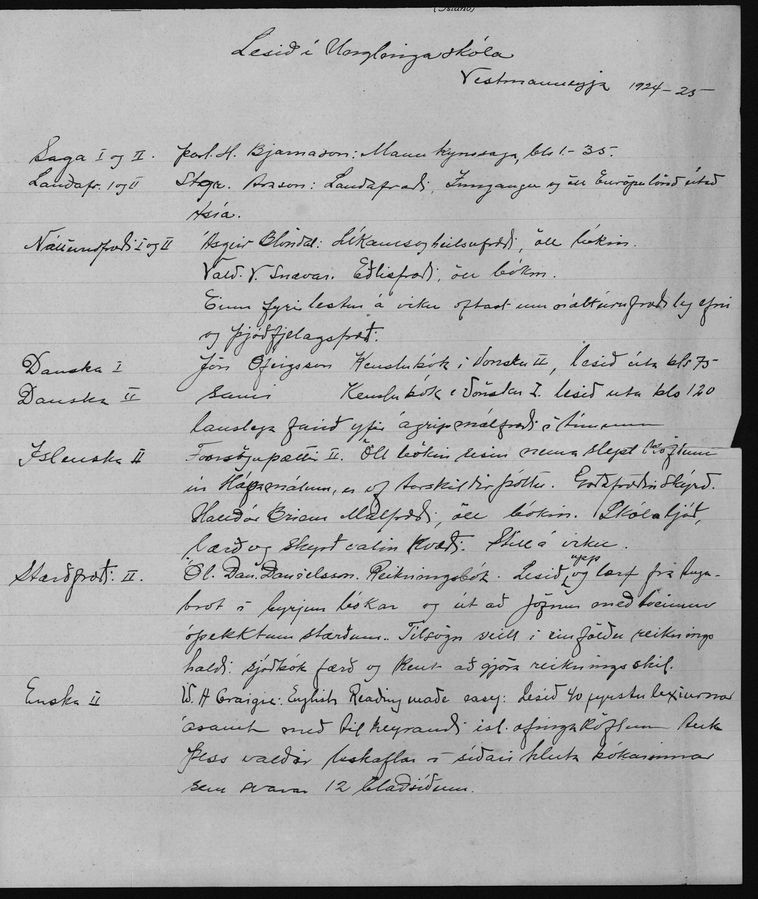 (Ísland)
Lesið í Unglingaskóla
Vestmannaeyja 1924-25-
Saga I og II. Þorl. H. Bjarnason: Mannkynssaga, bls 1-35.
Landafr. I og II Stegr. Arason: Landafræði, Inngangur og öll Evrópulönd útað
Asía.
Náttúrufræði I og II Ásgeir Blöndal: Líkams og heilsufræði, öll bókin.
Vald. V. Snævar. Eðlisfræði, öll bókin.
Einn fyrirlestur á viku oftast um náttúrufræðileg efni
og þjóðfjelagsfræði.
Danska I Jón Ófeigsson Kenslubók í Dönsku II, lesið úta bls 75
Danska II Sami Kenslubók í Dönsku I. lesið úta bls 120
lauslega farið yfir ágrip málfræði í tímanum
Íslenska II Fornsöguþættir II. Öll bókin lesin nema slept köflum
úr Hávamálum, er of torskildir þóttu. Goðafræðin skýrð.
Halldór Briem Málfræði, öll bókin. Skólaljóð,
lærð og skýrð valin kvæði. Stíll á viku.
Stærðfræði. II. Ól. Dan. Daníelsson. Reikningsbók. Lesið upp og lært frá tuga-
brot í byrjun bókar og út að jöfnum með tveimur
óþekktum stærðum. Tilsögn veitt í einföldu reiknings
haldi. sjóðbók færð og kent að gjöra reikningsskil.
Enska II W. A Craigie: English Reading made easy: Lesið 40 fyrstu lexiurnar
ásamt með tilheyrandi ísl. æfingaköflum Auk
þess valdir leskaflar í síðari hluta bókarinnar
sem svarar 12 blaðsíðum.